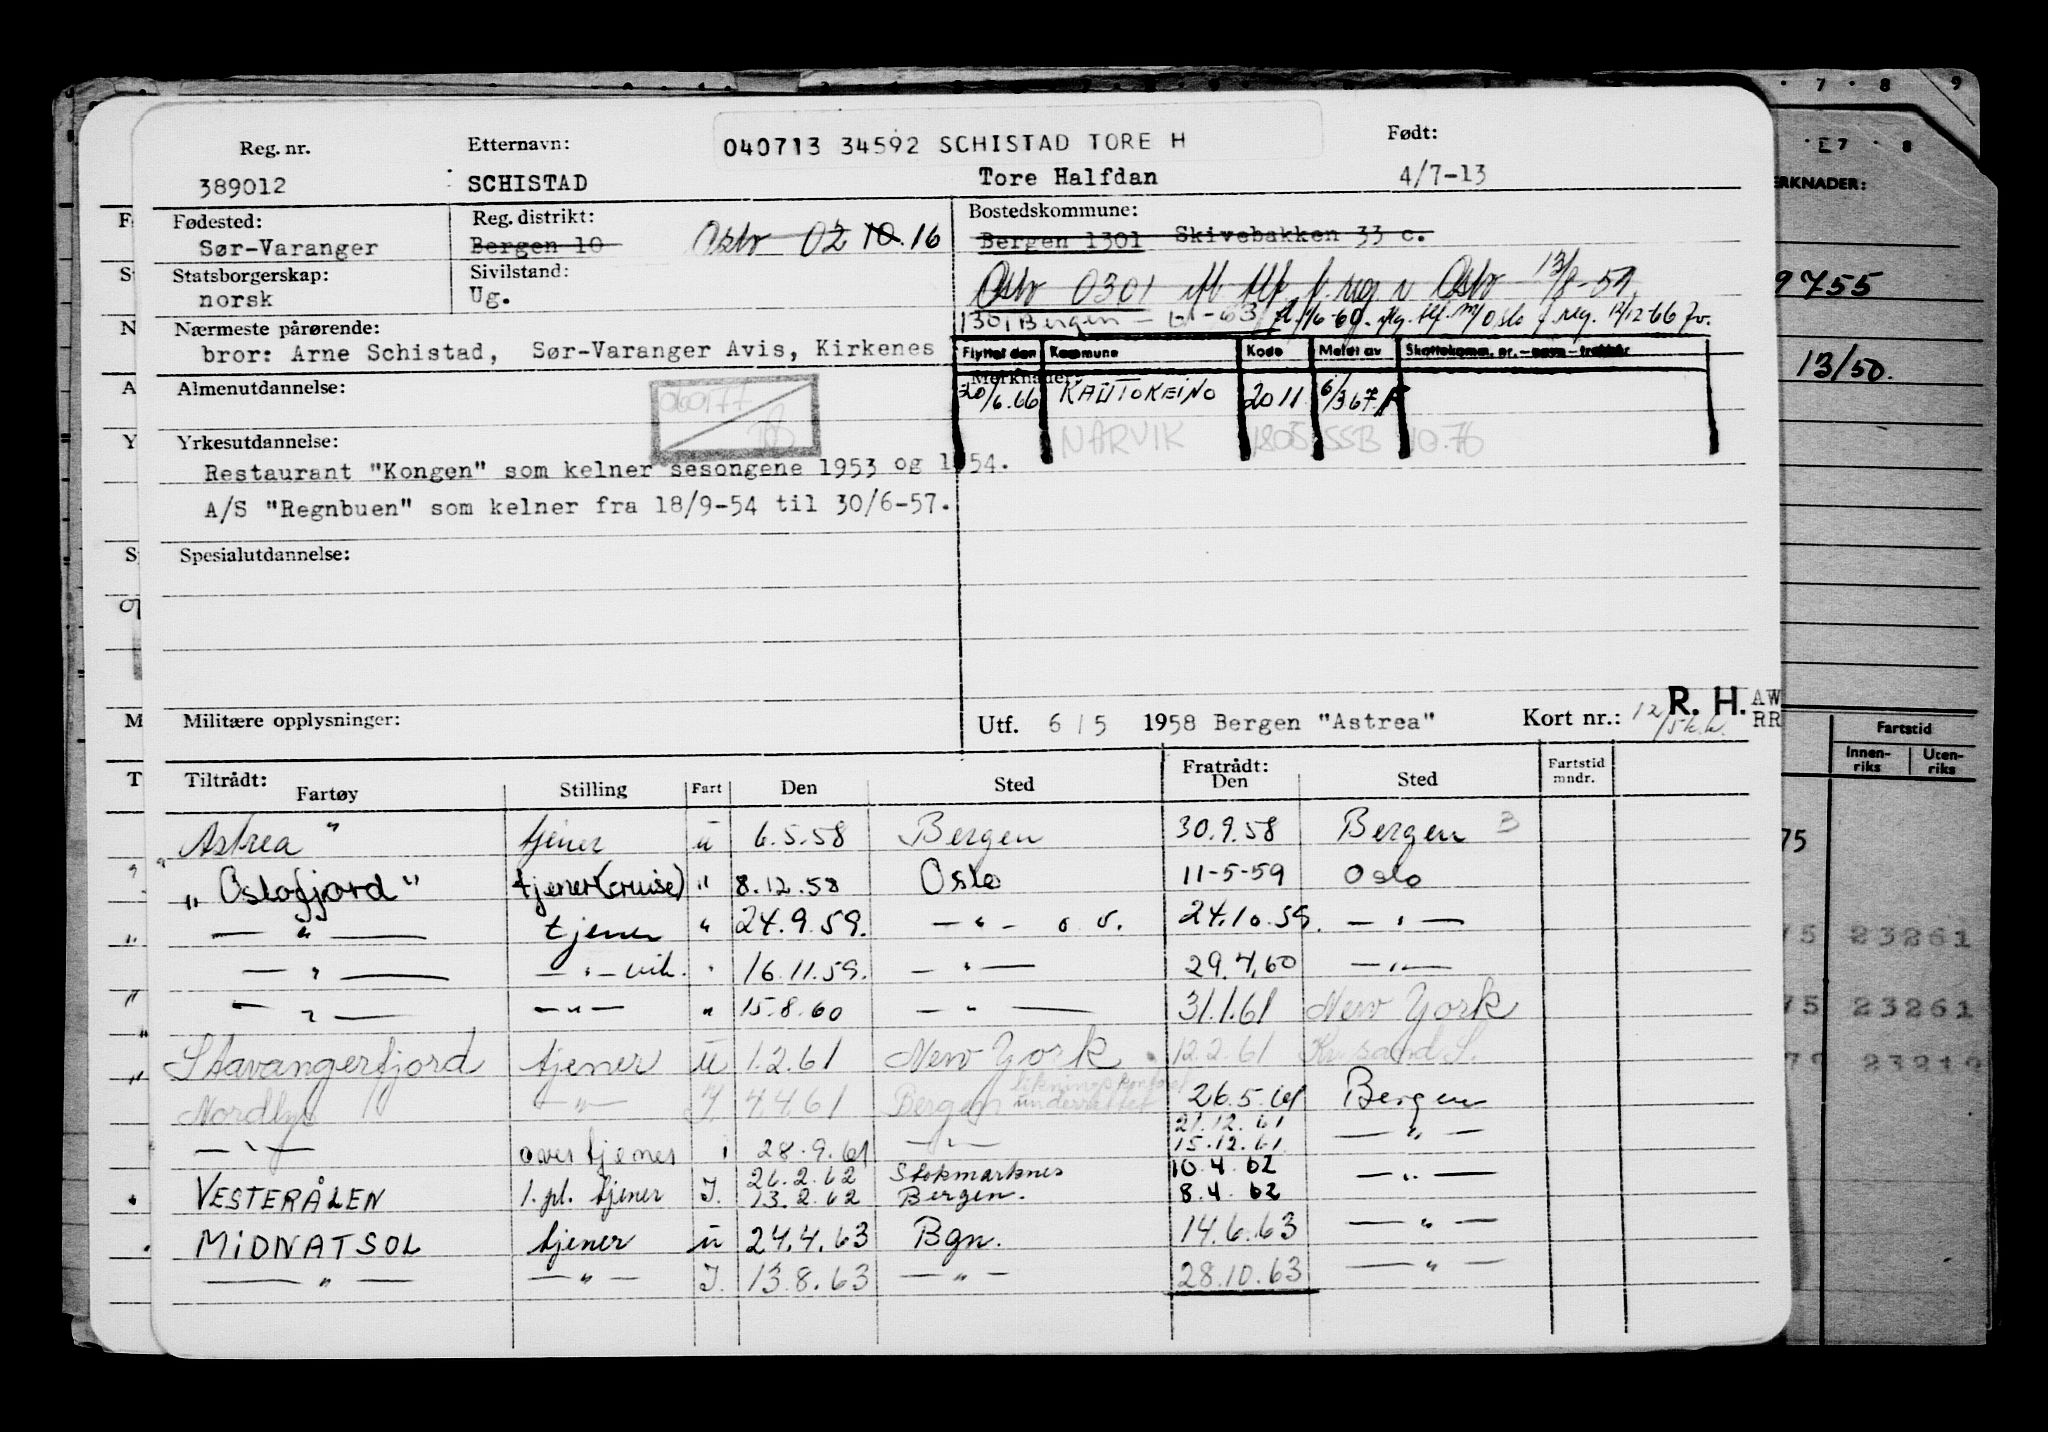 040713 34592 SCHISTAD TORE H
Reg. nr. Etternavn: Født:
389012 SCHISTAD Tore Halfdan 4/7-13
Fødested: Reg. distrikt: Bostedskommune:
Sør-Varanger Bergen 10 Oslo 02 10. 16 Bergen 1301 Skivebakken 33 c.
Statsborgerskap: Sivilstand: Oslo 0301 reg i Oslo 13/8-59
norsk Ug.
1301 Bergen - 61-63 Oslo reg. 12/12-66
Nærmeste pårørende:
bror: Arne Schistad, Sør-Varanger Avis, Kirkenes
Flyttet den Kommune Kode Meldt av
Almenutdannelse: Merknader:
20/6.66 KAUTOKEINO 2011 6/3 67
060177
NARVIK 1805 SSB 10.76
Yrkesutdannelse:
Restaurant "Kongen" som kelner sesongene 1953 og 1954.
A/S "Regnbuen" som kelner fra 18/9-54 til 30/6-57.
Spesialutdannelse:
Militære opplysninger: Utf. 6/5 1958 Bergen "Astrea" Kort nr.: R. H. AW
RR
Tiltrådt: Fratrådt:
Fartøy Stilling Fart Den Sted Den Sted Fartstid mndr.
Astrea " tjener u 6.5.58 Bergen 30.9.58 Bergen 3
" Oslofjord " tjener (cruise) " 8.12.58 Oslo 11-5-59 Oslo
— " — tjener " 24.9.59. — " — 24.10.59. — " —
— " — — " — " 16.11.59. — " — 29.4.60 — " —
— " — — " — " 15.8.60 — " — 31.1.61 New York
Stavangerfjord tjener u 1.2.61 New York 12.2.61 Kr.sand S.
Nordlys — " — I 4.4.61 Bergen underrettet 26.5.61 Bergen
— " — overtjener " 28.9.61 — " — 21.12.61 15.12.61 — " —
VESTERÅLEN 1. pl. tjener I. 26.2.62 13.2.62 Stokmarknes Bergen. 10.4.62 8.4.62 — " —
MIDNATSOL tjener u 24.4.63 Bgn. 14.6.63 — " —
— " — — " — I. 13.8.63 — " — 28.10.63 — " —
7 8 9
E7 8
ERKNADER:
9755
13/50.
Fartstid
Innen-
riks
Uten-
riks
75
75 23261
75 23261